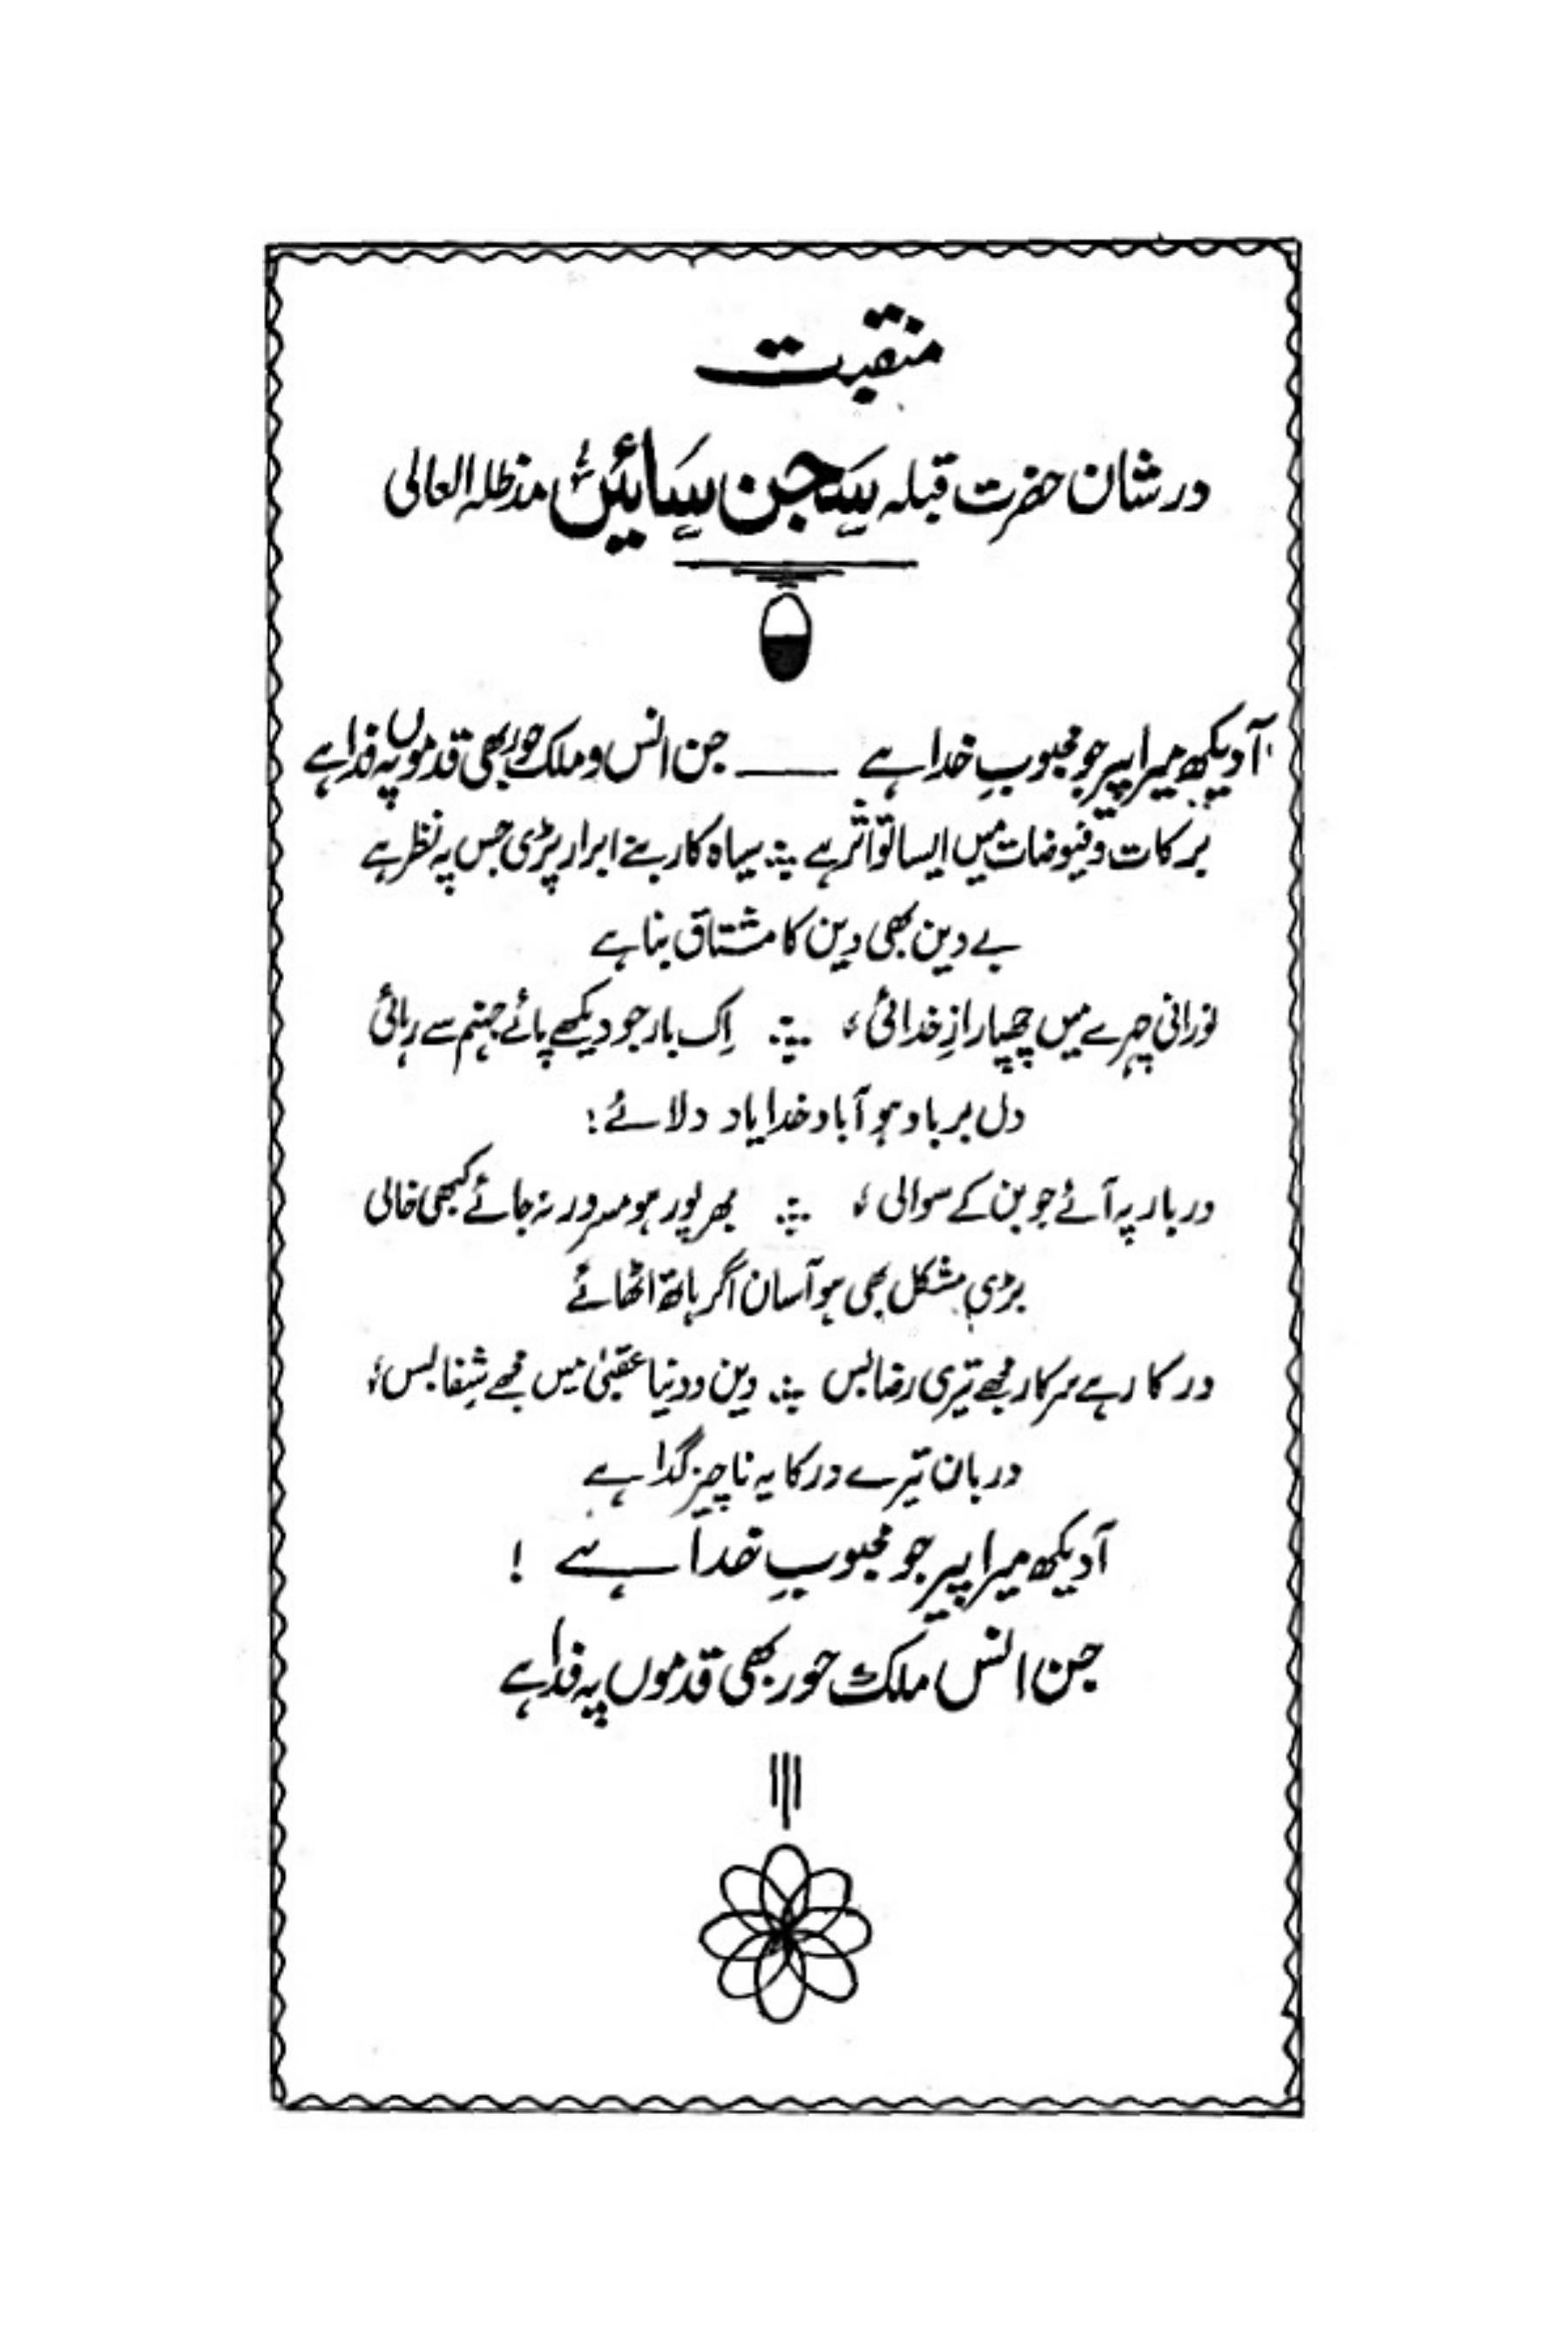 منقبت
در شان حضرت قبلہ سجن سائیں مدظلہ العالی
آ دیکھ میرا پیر جو محبوبِ خدا ہے ــــــ جن انس و ملک حور بھی قدموں پہ فدا ہے
برکات و فیوضات میں ایسا تواتر ہے ؞ سیاہ کار بنے ابرار پڑی جس پہ نظر ہے
بے دین بھی دین کا مشتاق بنا ہے
نورانی چہرے میں چھپا رازِ خدائی ، ؞ اِک بار جو دیکھے پائے جہنم سے رہائی
دل برباد ہو آباد خدا یاد دلائے :
دربار پہ آئے جو بن کے سوالی ، ؞ بھرپور ہو مسرور نہ جائے کبھی خالی
بڑی مشکل بھی ہو آسان اگر ہاتھ اٹھائے
درکار ہے سرکار مجھے تیری رضا بس ؞ دین و دنیا عقبیٰ میں مجھے شِفا بس ،
دربان تیرے در کا یہ ناچیز گدا ہے
آ دیکھ میرا پیر جو محبوبِ خدا ہے !
جن انس ملک حور بھی قدموں پہ فدا ہے